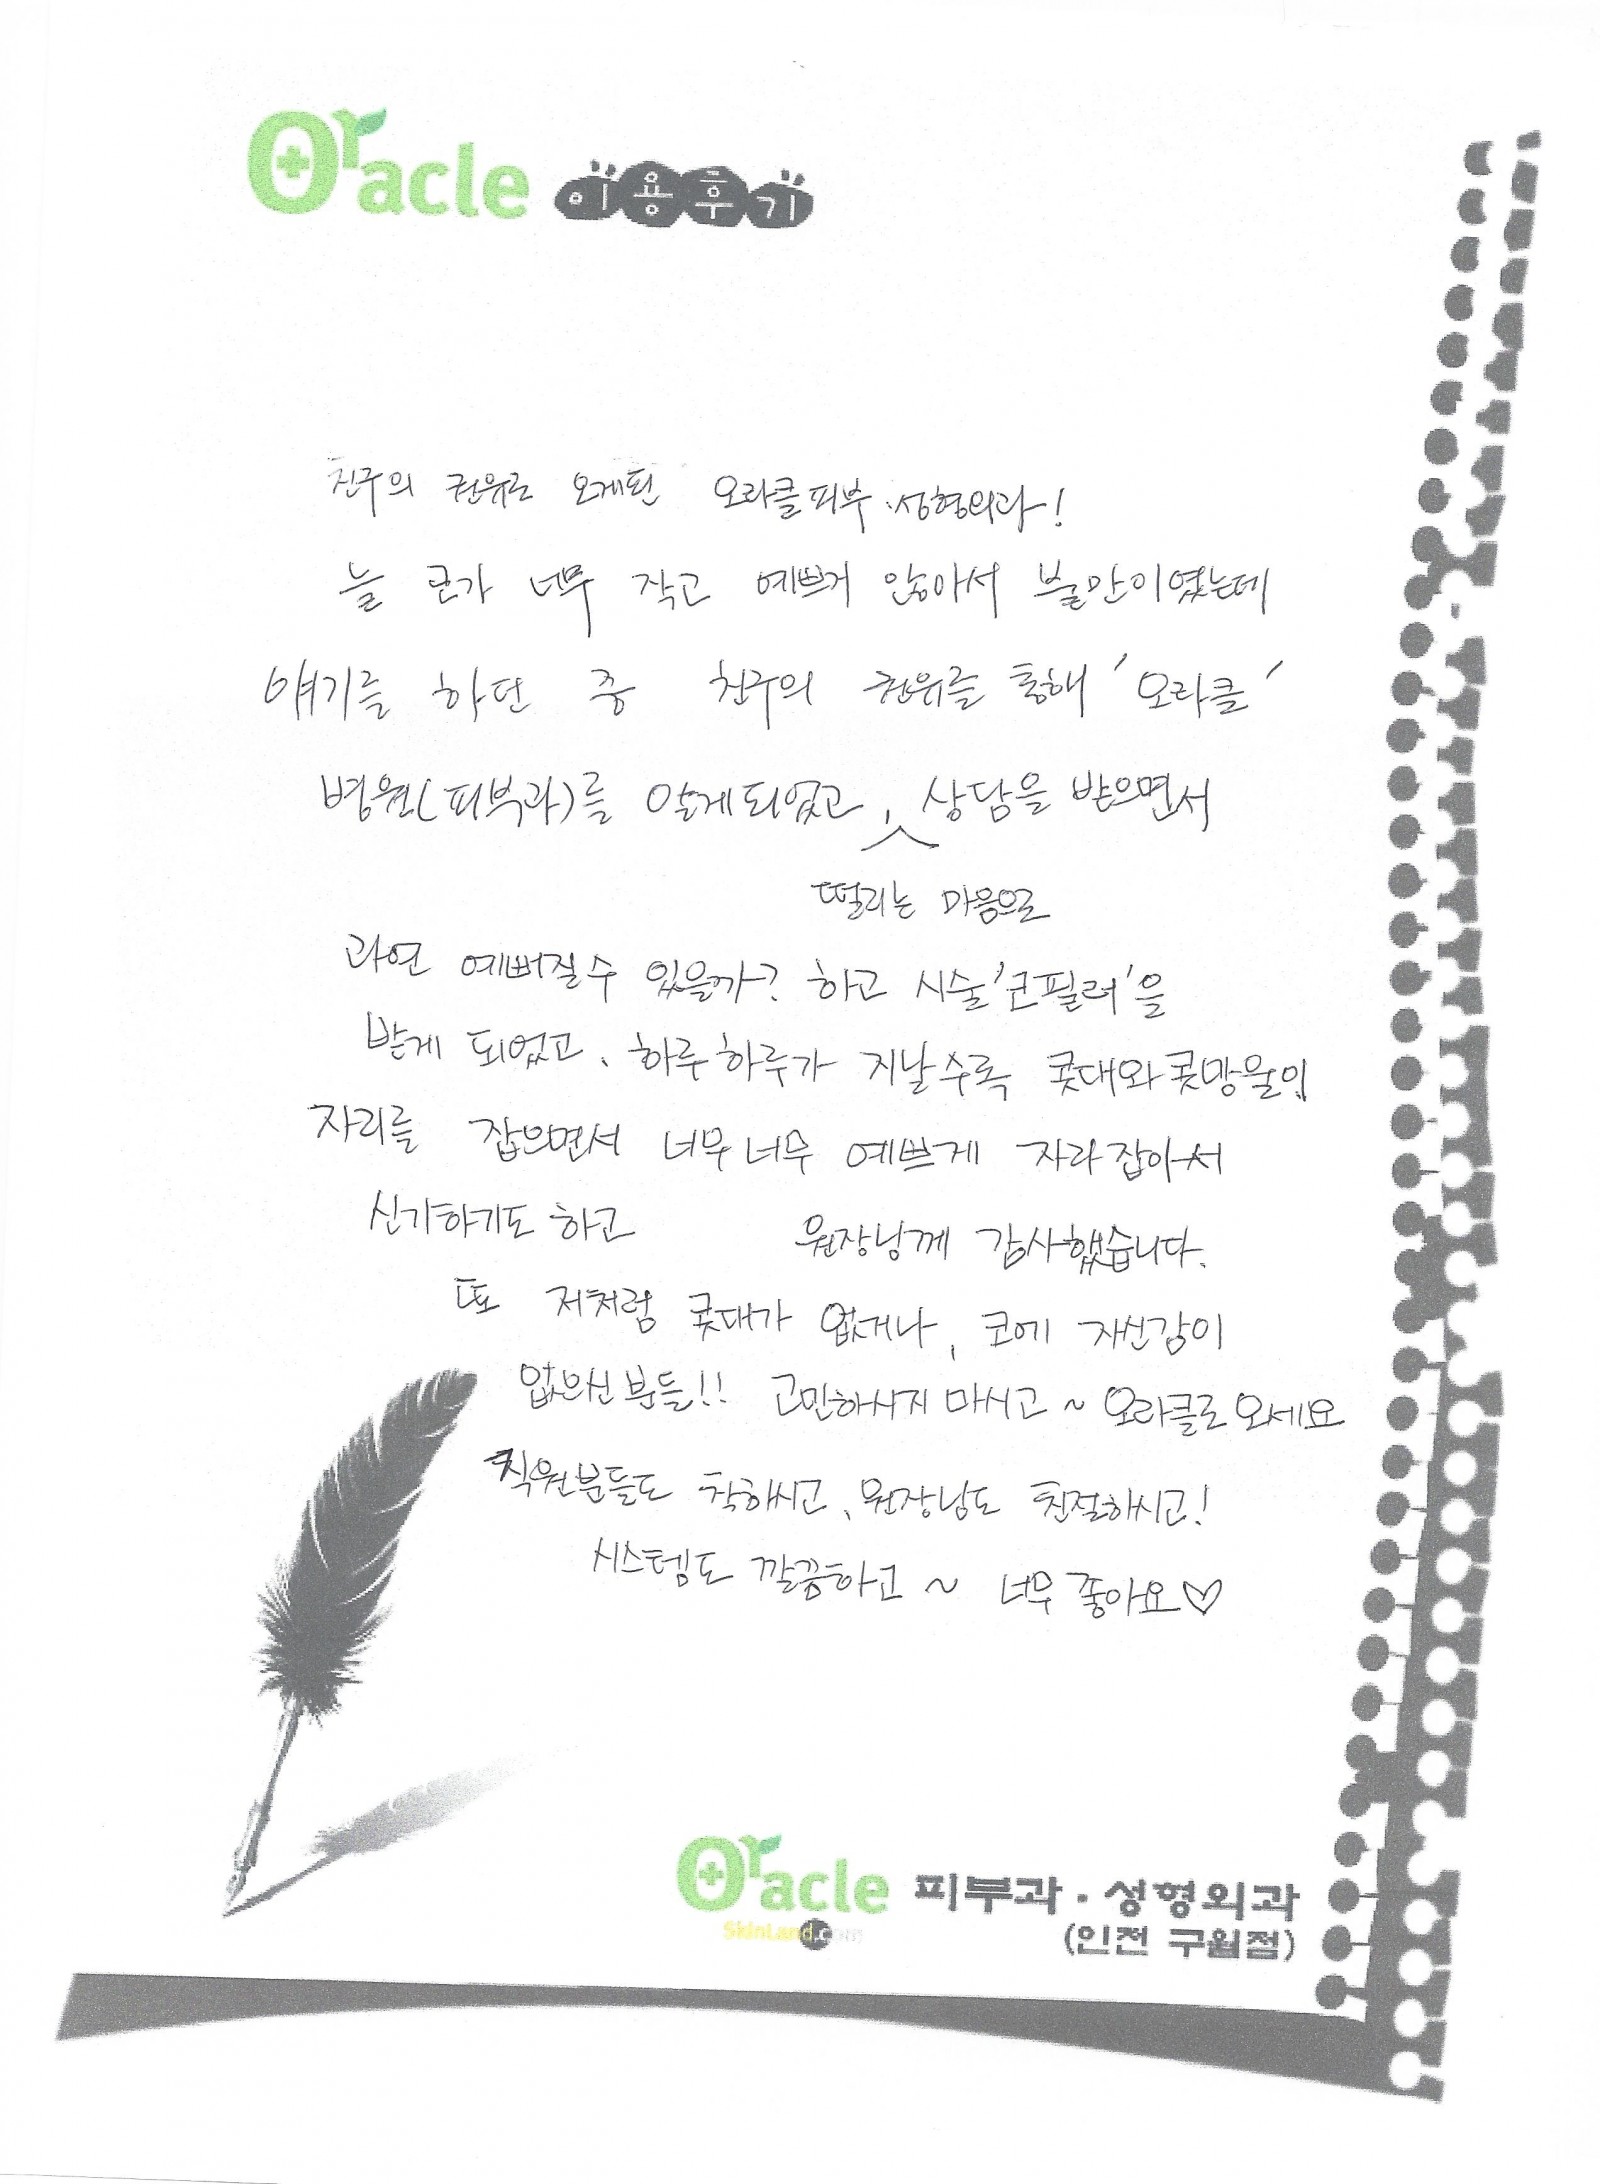 Oracle 이용후기
친구의 권유로 오게된 오라클피부.성형외과!
늘 코가 너무 작고 예쁘거 않아서 불만이였는데
얘기를 하던 중 친구의 권유를 통해 '오라클'
병원(피부과)를 알게되었고, 상담을 받으면서
떨리는 마음으로
과연 예뻐질수 있을까? 하고 시술'코필러'을
받게 되었고, 하루하루가 지날수록 콧대와 콧망울이
자리를 잡으면서 너무너무 예쁘게 자라잡아서
신기하기도 하고 원장닝께 감사했습니다.
또 저처럼 콧대가 없거나, 코에 자신감이
없으신분들!! 고민하시지 마시고~ 오라클로오세요
직원분들도 착하시고, 원장님도 친절하시고!
시스템도 깔끔하고~ 너무 좋아요♡
Oracle 피부과·성형외과
SkinLand.com
(인천 구월점)